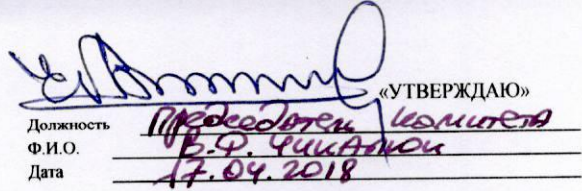 «УТВЕРЖДАЮ»
Должность Председатель комитета
Ф.И.О. В.Ф.
Дата 17.04.2018